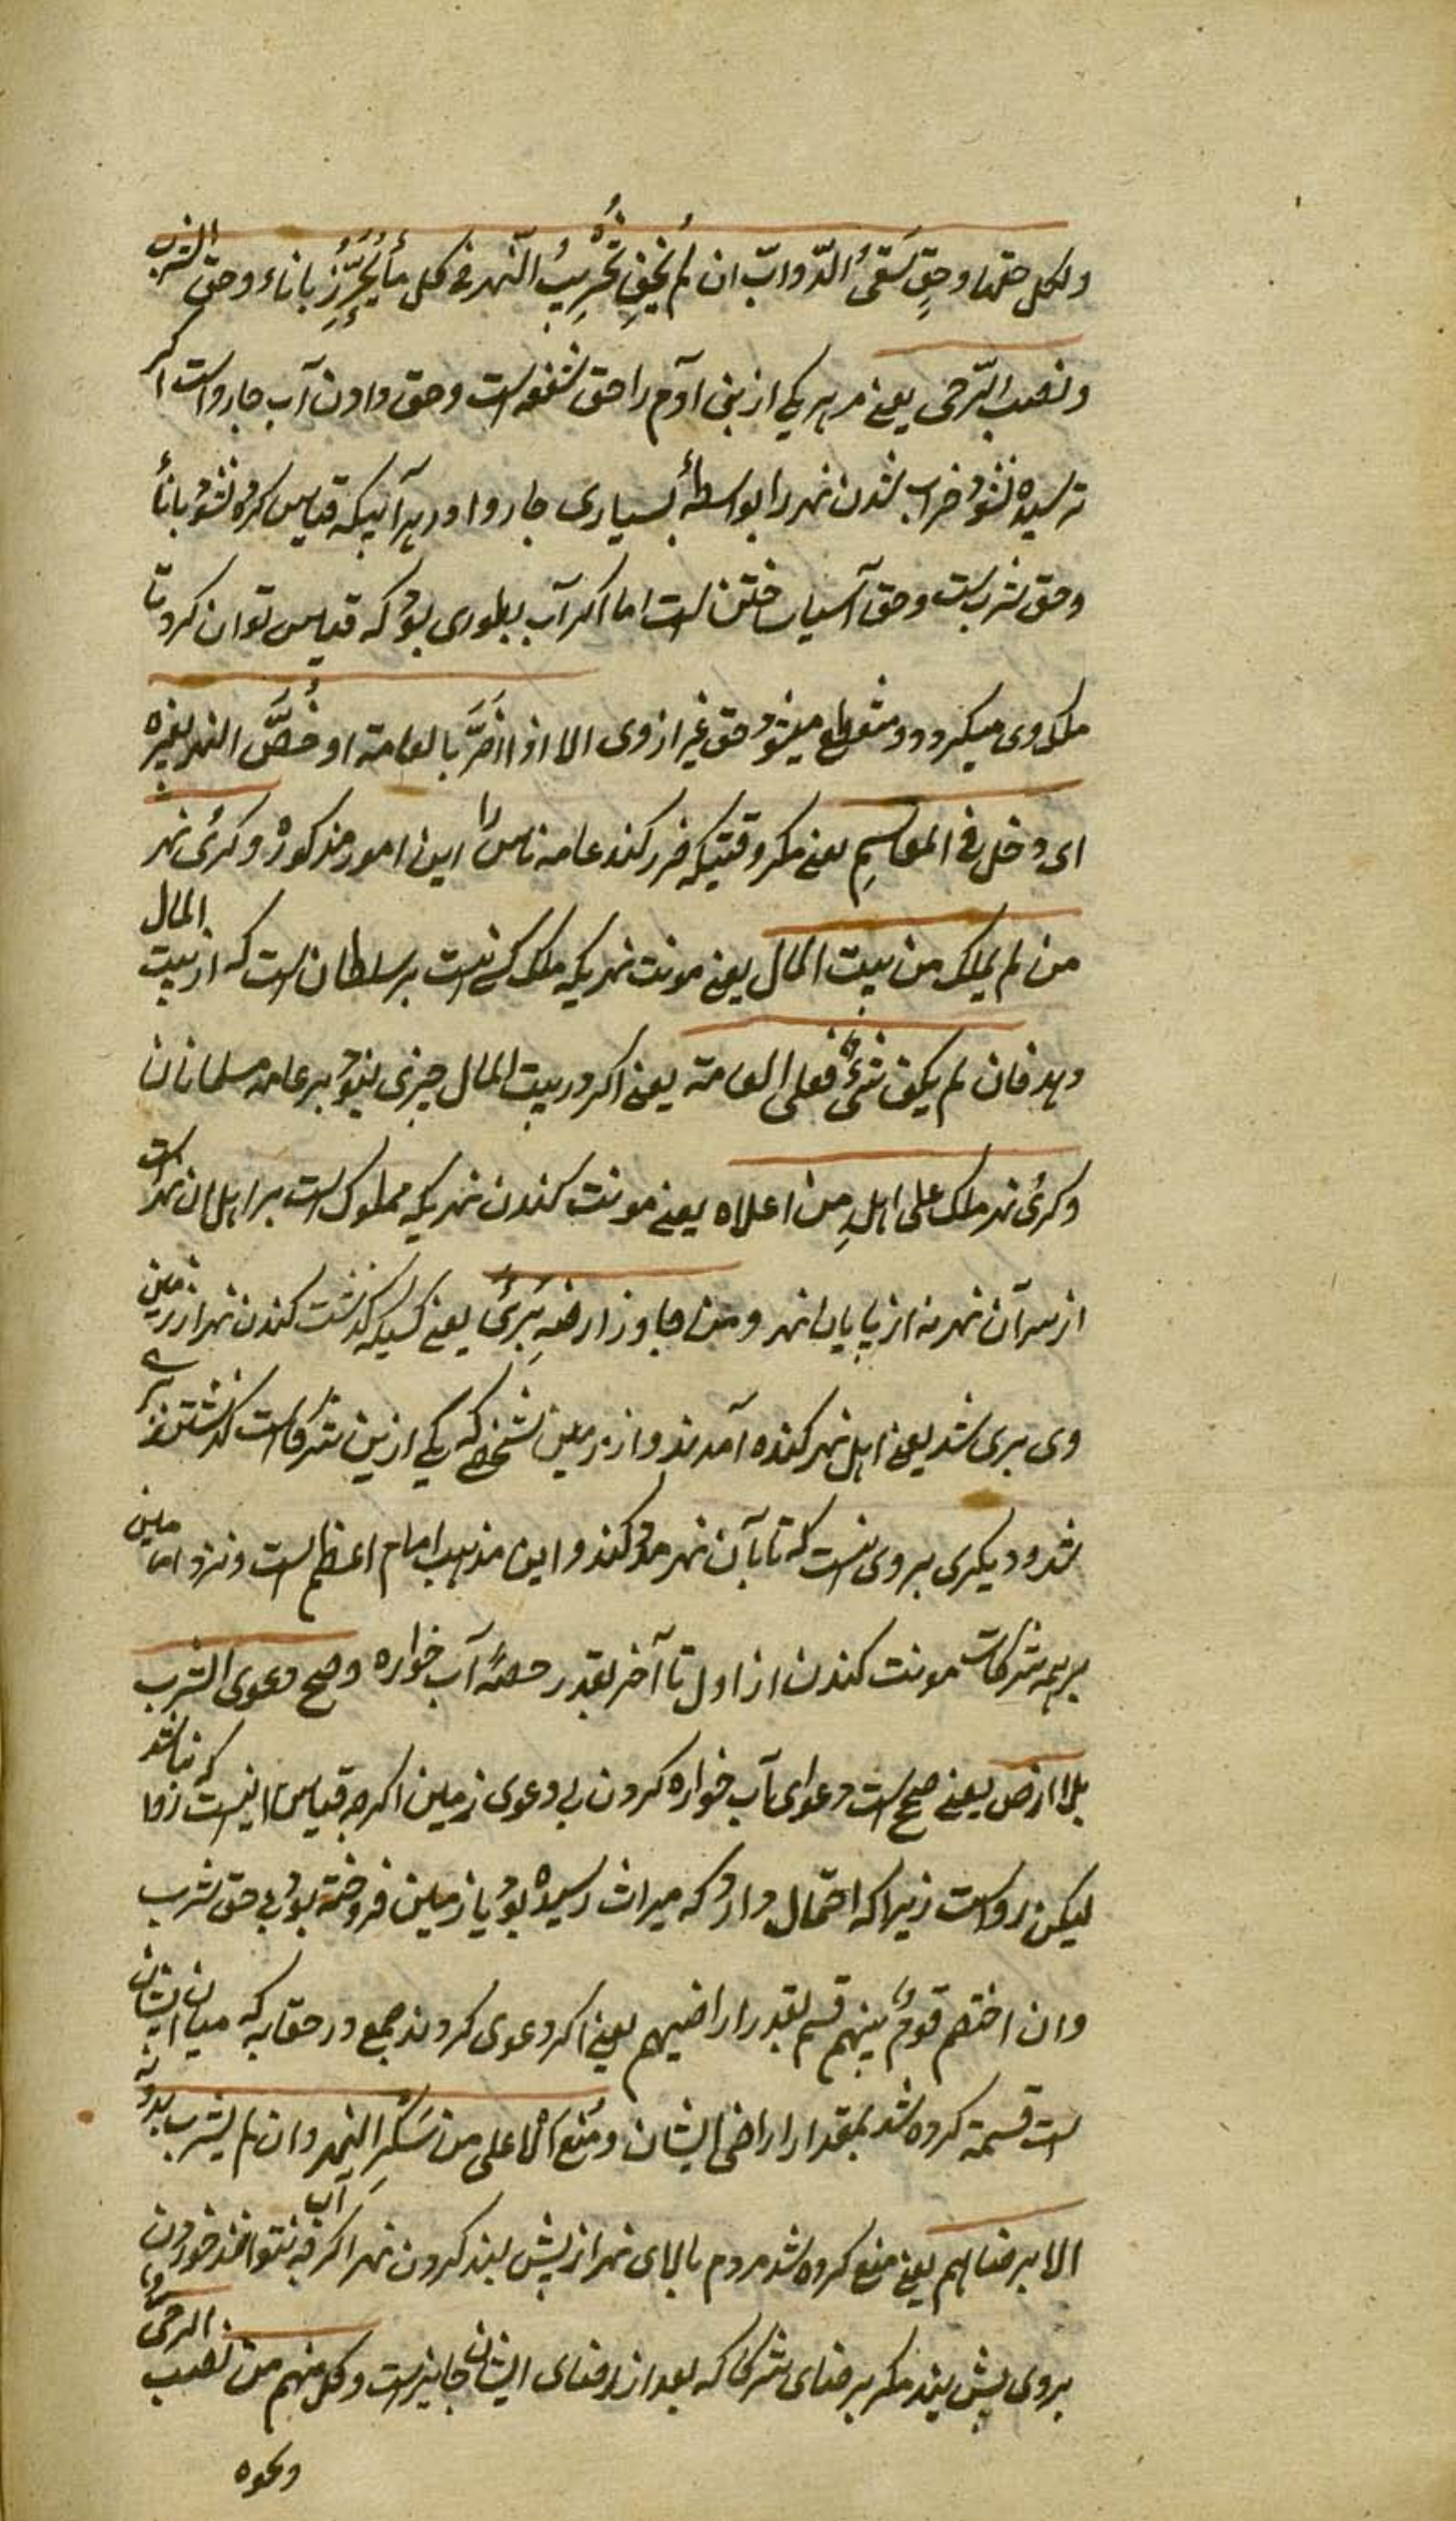 ولکل حقها وحق سَقْیُ الدّوابّ ان لم یُخَفْ تَخْرِیبُ النّهر فی کل ما یُحْرَزُ باناء وحق الشرب
ونصب الرّحی یعنی مر هر یکی از بنی آدم را حق شفه است وحق دادن آب چارواست اکر
ترسیده نشود خراب شدن نهر را بواسطهٔ بسیاری چاروا ودر هر آبیکه قیاس کرده نشود باناء
وحق شرب است وحق آسیا ساختن است اما اکر آب بطوری بود که قیاس توان کرد تا
ملک وی میکردد ومنقطع میشود حق غیر از وی الا اذا اَضَرَّ بالعامة او خُصَّ النهر بغیره
ای دخل فی المقاسِمِ یعنی مکر وقتیکه ضرر کند عامه ناس را این امور مذکوره وکری نهر
من لم یملک من بیت المال یعنی مونت نهریکه ملک کسی نیست بر سلطان است که از بیت المال
دهد فان لم یکن شیٌٔ فعلی العامة یعنی اکر در بیت المال چیزی نبود بر عامه مسلمانان
وکری نهر ملک علی اهلِهِ من اعلاه یعنی مونت کندن نهریکه مملوک است بر اهل ان نهر است
از سر آن نهر نه از پایان نهر ومن جاوز ارضه بَرِئَ یعنی کسیکه کذشت کندن نهر از زمین
وی بری شد یعنی اهل نهر کنده آمدند واز زمین شخصی که یکی ازین شرکا است کذشتند
شد ودیکری بر وی نیست که تا بآن نهر مدد کند واین مذهب امام اعظم است ونزد امامین
بر همه شرکاست مونت کندن از اول تا آخر بقدر حصهٔ آب خواره وصح دعوی الشرب
بلا ارض یعنی صحیح است دعوای آب خواره کردن بی دعوی زمین اکرچه قیاس اینست که نباشد روا
لیکن رواست زیراکه احتمال دارد که میراث رسیده بود یا زمین فروخته بود بی حق شرب
وان اختصم قومٌ بینهم قسم بقدر اراضیهم یعنی اکر دعوی کردند جمع در حقابه که میان ایشان
است قسمة کرده شد بمقدار اراضی ایشان ومُنِعَ الاعلی من سَکْرِ النهر وان لم یشرب بدونه
الا برضاهم یعنی منع کرده شد مردم بالای نهر از پیش بند کردن نهر اکرچه نتوانند آب خوردن
بروی پیش بند مکر برضای شرکا که بعد از رضای ایشان جایز است وکل منهم من نصب الرحی
ونحوه